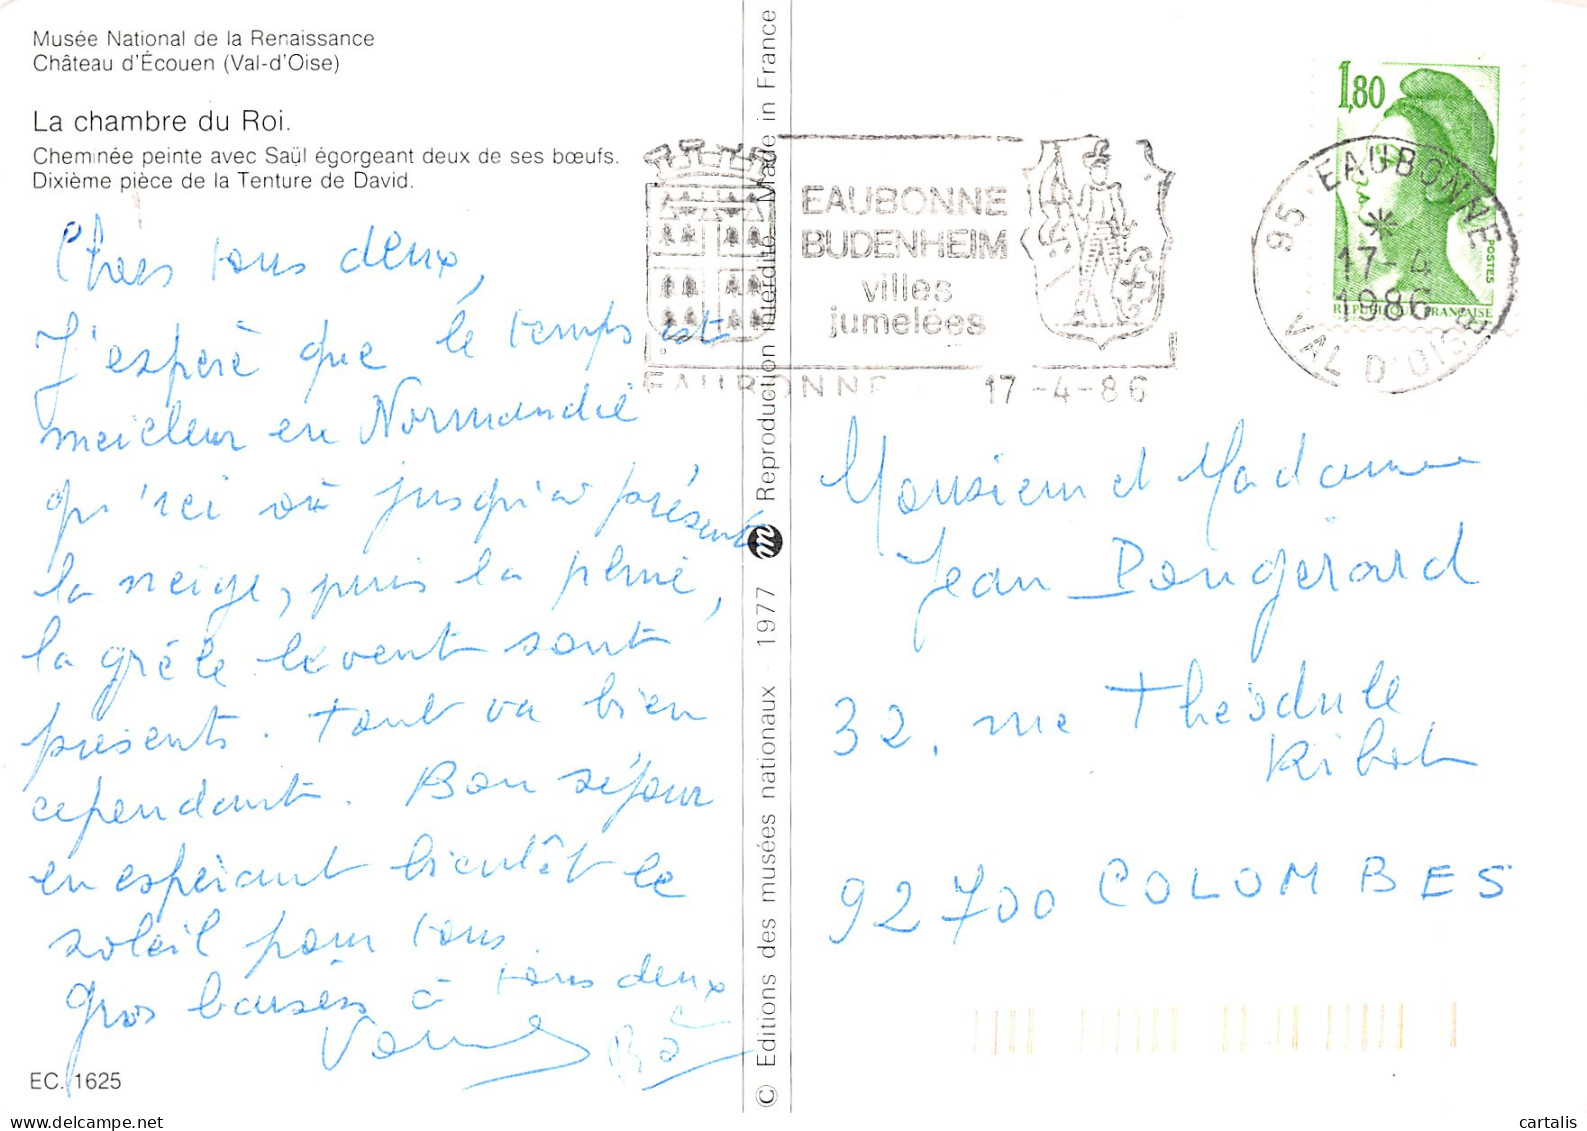 Musée National de la Renaissance
Château d'Écouen (Val-d'Oise)
La chambre du Roi.
Cheminée peinte avec Saül égorgeant deux de ses bœufs.
Dixième pièce de la Tenture de David.
Chers tous deux,
J'espère que le temps est
meilleur en Normandie
qu'ici où jusqu'à présent
la neige, puis la pluie,
la grêle le vent sont
présents. Tout va bien
cependant. Bon séjour
en espérant bientôt le
soleil pour tous.
gros baisers à tous deux
EC. 1625
© Editions des musées nationaux - 1977
Reproduction interdite. Made in France
EAUBONNE
BUDENHEIM
villes
jumelées
EAUBONNE 17-4-86
1,80
POSTES
REPUBLIQUE FRANÇAISE
95 EAUBONNE
17-4
1986
VAL D'OISE
Monsieur et Madame
Jean
32, rue Théodule
Ribot
92700 COLOMBES
cartalis